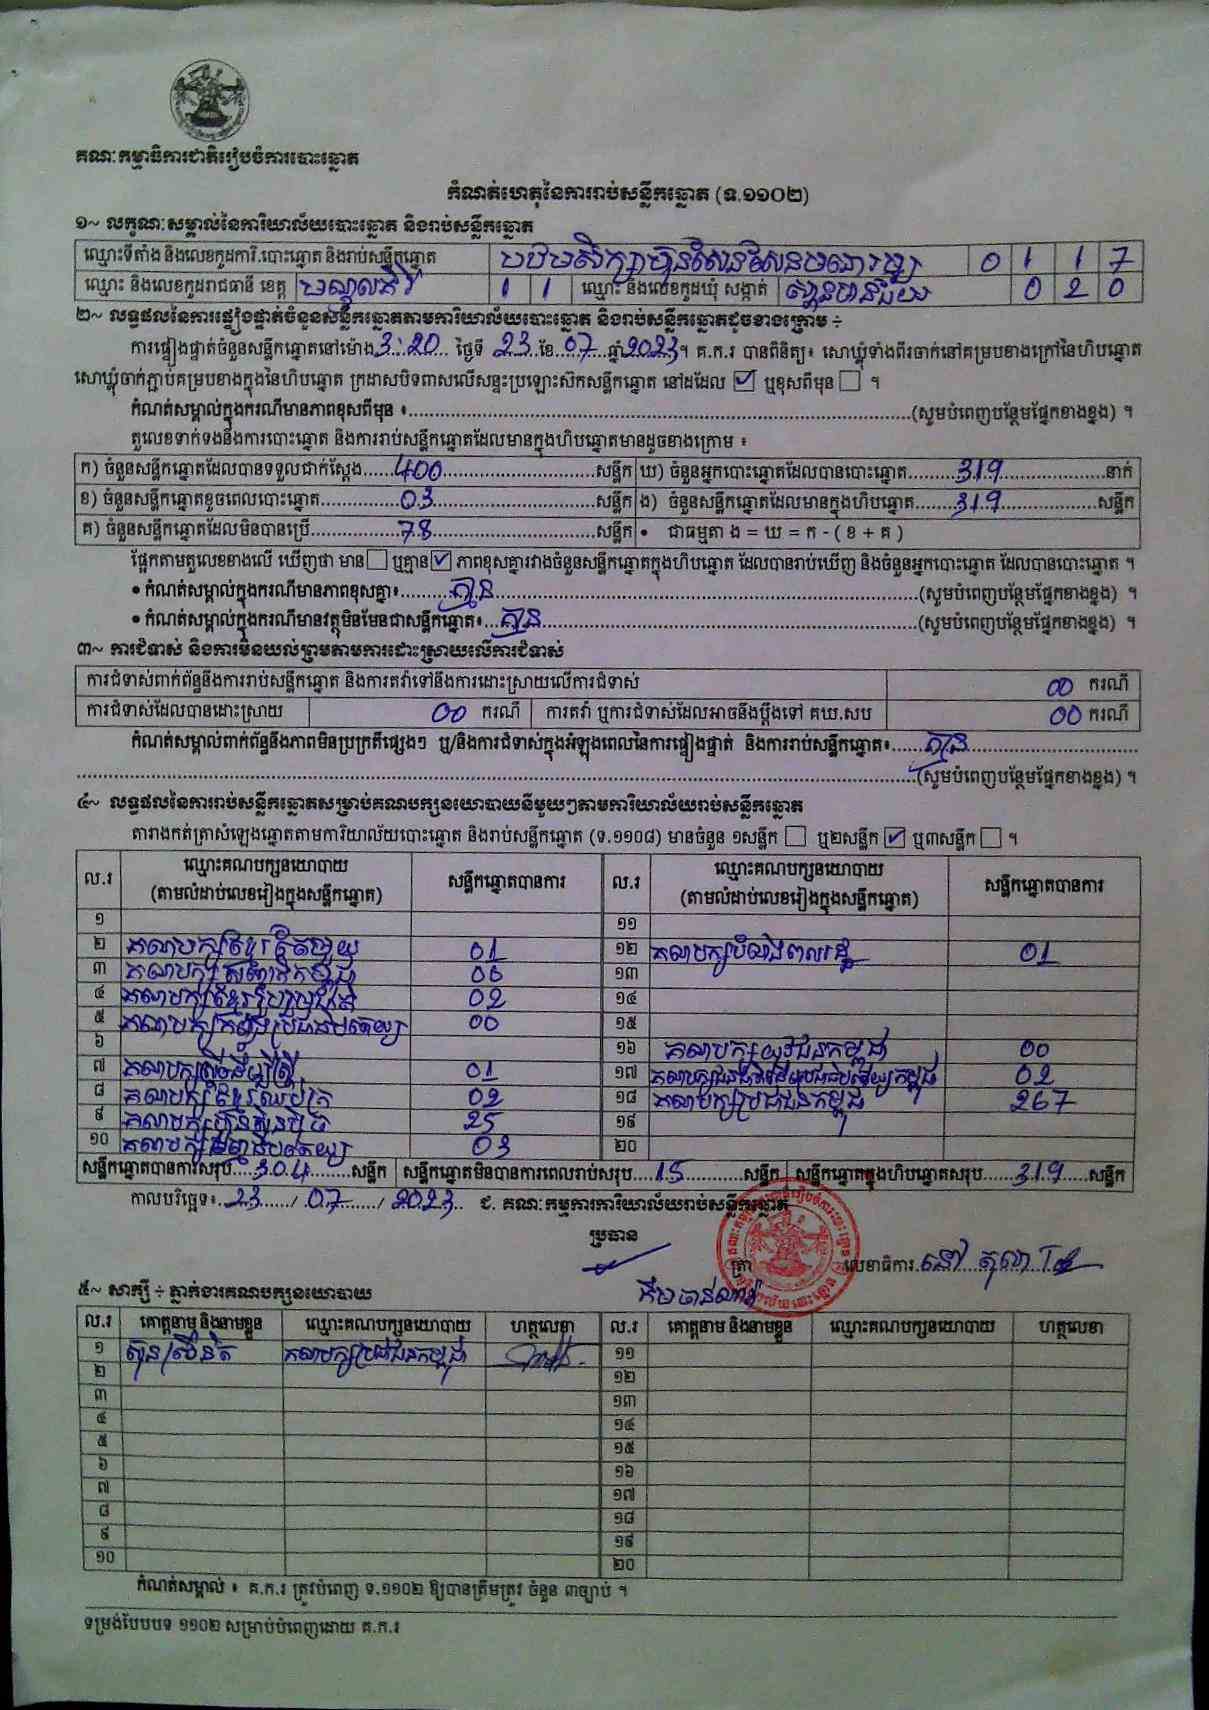 គណៈកម្មាធិការជាតិរៀបចំការបោះឆ្នោត
កំណត់ហេតុនៃការរាប់សន្លឹកឆ្នោត (ទ.១១០២)
១~ លក្ខណៈសម្គាល់នៃការិយាល័យបោះឆ្នោត និងរាប់សន្លឹកឆ្នោត
ឈ្មោះទីតាំង និងលេខកូដការិ.បោះឆ្នោត និងរាប់សន្លឹកឆ្នោត បឋមសិក្សាហ៊ុនសែនសែនមនោរម្យ 0 1 1 7
ឈ្មោះ និងលេខកូដរាជធានី ខេត្ត មណ្ឌលគិរី 1 1 ឈ្មោះ និងលេខកូដឃុំ សង្កាត់ ស្ពានមានជ័យ 0 2 0
២~ លទ្ធផលនៃការផ្ទៀងផ្ទាត់ចំនួនសន្លឹកឆ្នោតតាមការិយាល័យបោះឆ្នោត និងរាប់សន្លឹកឆ្នោតដូចខាងក្រោម ÷
ការផ្ទៀងផ្ទាត់ចំនួនសន្លឹកឆ្នោតនៅម៉ោង 3:20 ថ្ងៃទី 23 ខែ 07 ឆ្នាំ 2023 ។ គ.ក.រ បានពិនិត្យ៖ សោឃ្លុំទាំងពីរចាក់នៅគម្របខាងក្រៅនៃហិបឆ្នោត
សោឃ្លុំចាក់ភ្ជាប់គម្របខាងក្នុងនៃហិបឆ្នោត ក្រដាសបិទពាសលើសន្ទះប្រឡោះស៊កសន្លឹកឆ្នោត នៅដដែល ☑ ឬខុសពីមុន ☐ ។
កំណត់សម្គាល់ក្នុងករណីមានភាពខុសពីមុន ៖ (សូមបំពេញបន្ថែមផ្នែកខាងខ្នង) ។
តួលេខទាក់ទងនឹងការបោះឆ្នោត និងការរាប់សន្លឹកឆ្នោតដែលមានក្នុងហិបឆ្នោតមានដូចខាងក្រោម ៖
ក) ចំនួនសន្លឹកឆ្នោតដែលបានទទួលជាក់ស្តែង 400 សន្លឹក ឃ) ចំនួនអ្នកបោះឆ្នោតដែលបានបោះឆ្នោត 319 នាក់
ខ) ចំនួនសន្លឹកឆ្នោតខូចពេលបោះឆ្នោត 03 សន្លឹក ង) ចំនួនសន្លឹកឆ្នោតដែលមានក្នុងហិបឆ្នោត 319 សន្លឹក
គ) ចំនួនសន្លឹកឆ្នោតដែលមិនបានប្រើ 78 សន្លឹក • ជាធម្មតា ង = ឃ = ក - ( ខ + គ )
ផ្អែកតាមតួលេខខាងលើ ឃើញថា មាន ☐ ឬគ្មាន ☑ ភាពខុសគ្នារវាងចំនួនសន្លឹកឆ្នោតក្នុងហិបឆ្នោត ដែលបានរាប់ឃើញ និងចំនួនអ្នកបោះឆ្នោត ដែលបានបោះឆ្នោត ។
• កំណត់សម្គាល់ក្នុងករណីមានភាពខុសគ្នា៖ គ្មាន (សូមបំពេញបន្ថែមផ្នែកខាងខ្នង) ។
• កំណត់សម្គាល់ក្នុងករណីមានវត្ថុមិនមែនជាសន្លឹកឆ្នោត៖ គ្មាន (សូមបំពេញបន្ថែមផ្នែកខាងខ្នង) ។
៣~ ការជំទាស់ និងការមិនយល់ព្រមតាមការដោះស្រាយលើការជំទាស់
ការជំទាស់ពាក់ព័ន្ធនឹងការរាប់សន្លឹកឆ្នោត និងការតវ៉ាទៅនឹងការដោះស្រាយលើការជំទាស់ 00 ករណី
ការជំទាស់ដែលបានដោះស្រាយ 00 ករណី ការតវ៉ា ឬការជំទាស់ដែលអាចនឹងប្តឹងទៅ គឃ.សប 00 ករណី
កំណត់សម្គាល់ពាក់ព័ន្ធនឹងភាពមិនប្រក្រតីផ្សេងៗ ឬ/និងការជំទាស់ក្នុងអំឡុងពេលនៃការផ្ទៀងផ្ទាត់ និងការរាប់សន្លឹកឆ្នោត៖ គ្មាន
(សូមបំពេញបន្ថែមផ្នែកខាងខ្នង) ។
៤~ លទ្ធផលនៃការរាប់សន្លឹកឆ្នោតសម្រាប់គណបក្សនយោបាយនីមួយៗតាមការិយាល័យរាប់សន្លឹកឆ្នោត
តារាងកត់ត្រាសំឡេងឆ្នោតតាមការិយាល័យបោះឆ្នោត និងរាប់សន្លឹកឆ្នោត (ទ.១១០៨) មានចំនួន ១សន្លឹក ☐ ឬ២សន្លឹក ☑ ឬ៣សន្លឹក ☐ ។
ល.រ ឈ្មោះគណបក្សនយោបាយ (តាមលំដាប់លេខរៀងក្នុងសន្លឹកឆ្នោត) សន្លឹកឆ្នោតបានការ ល.រ ឈ្មោះគណបក្សនយោបាយ (តាមលំដាប់លេខរៀងក្នុងសន្លឹកឆ្នោត) សន្លឹកឆ្នោតបានការ
១ ១១
២ គណបក្សខ្មែរតែមួយ 01 ១២ គណបក្សបំរើពលរដ្ឋ 01
៣ 00 ១៣
៤ គណបក្សខ្មែររួបរួមជាតិ 02 ១៤
៥ គណបក្សកម្លាំងប្រជាធិបតេយ្យ 00 ១៥
៦ ១៦ គណបក្សយុវជនកម្ពុជា 00
៧ គណបក្សដើម្បីស្ត្រី 01 ១៧ 02
៨ 02 ១៨ គណបក្សប្រជាជនកម្ពុជា 267
៩ គណបក្សហ៊្វុនស៊ិនប៉ិច 25 ១៩
១០ គណបក្សធម្មាធិបតេយ្យ 03 ២០
សន្លឹកឆ្នោតបានការសរុប 304 សន្លឹក សន្លឹកឆ្នោតមិនបានការពេលរាប់សរុប 15 សន្លឹក សន្លឹកឆ្នោតក្នុងហិបឆ្នោតសរុប 319 សន្លឹក
កាលបរិច្ឆេទ៖ 23 / 07 / 2023 ជ. គណៈកម្មការការិយាល័យរាប់សន្លឹកឆ្នោត
ប្រធាន
ត្រា លេខាធិការ នៅ តុលា
៥~ សាក្សី ÷ ភ្នាក់ងារគណបក្សនយោបាយ
ល.រ គោត្តនាម និងនាមខ្លួន ឈ្មោះគណបក្សនយោបាយ ហត្ថលេខា ល.រ គោត្តនាម និងនាមខ្លួន ឈ្មោះគណបក្សនយោបាយ ហត្ថលេខា
១ គណបក្សប្រជាជនកម្ពុជា ១១
២ ១២
៣ ១៣
៤ ១៤
៥ ១៥
៦ ១៦
៧ ១៧
៨ ១៨
៩ ១៩
១០ ២០
កំណត់សម្គាល់ ៖ គ.ក.រ ត្រូវបំពេញ ទ.១១០២ ឱ្យបានត្រឹមត្រូវ ចំនួន ៣ច្បាប់ ។
ទម្រង់បែបបទ ១១០២ សម្រាប់បំពេញដោយ គ.ក.រ